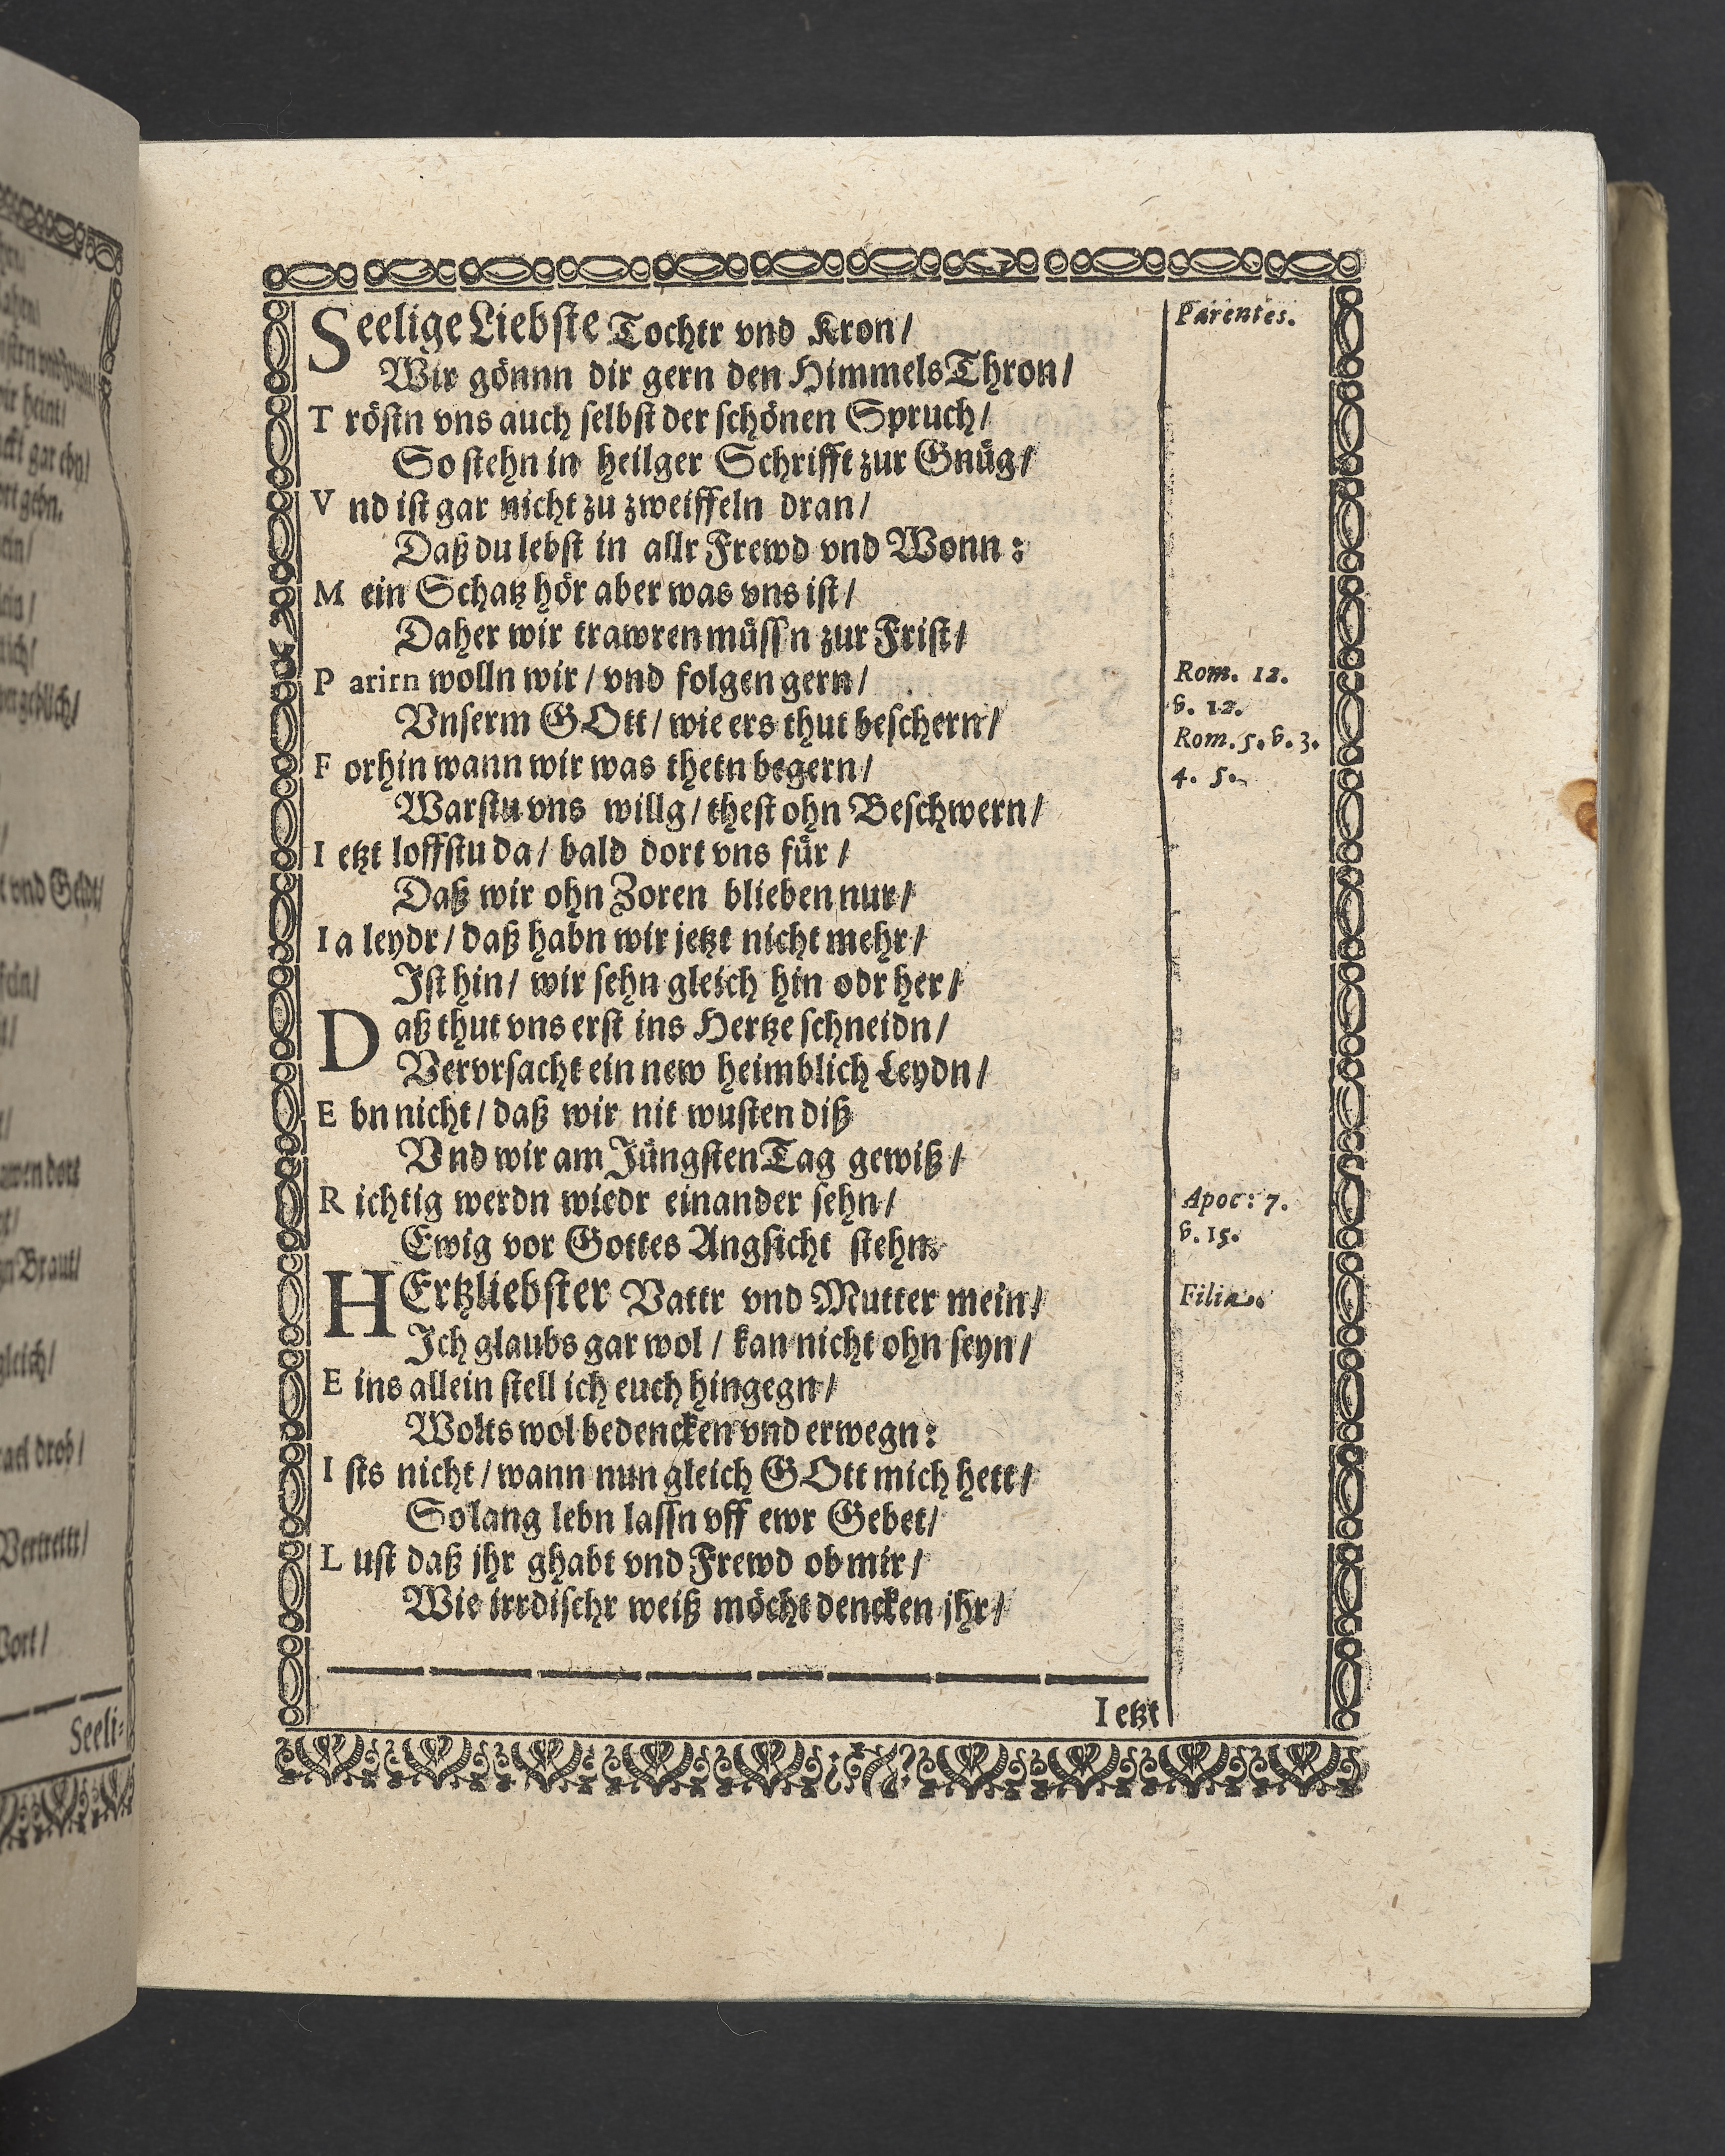 Seelige Liebste Tochtr vnd Kron/
Parentes.
Wir gönnn dir gern den HimmelsThron/
T röstn vns auch selbst der schönen Spruch/
So stehn in heilger Schrifft zur Gnüg/
V nd ist gar nicht zu zweiffeln dran/
Daß du lebst in allr Frewd vnd Wonn:
M ein Schatz hör aber was vns ist/
Daher wir trawren müssn zur Frist/
P arirn wolln wir/ vnd folgen gern/
Rom. 12.
Vnserm GOtt/ wie ers thut beschern/
v. 12.
Rom. 5. v. 3.
F orhin wann wir was thetn begern/
4. 5.
Warstu vns willg/ thest ohn Beschwern/
I etzt loffstu da/ bald dort vns für/
Daß wir ohn Zoren blieben nur/
I a leydr/ daß habn wir jetzt nicht mehr/
Ist hin/ wir sehn gleich hin odr her/
D aß thut vns erst ins Hertze schneidn/
Vervrsacht ein new heimblich Leydn/
E bn nicht/ daß wir nit wusten diß
Vnd wir am Jüngsten Tag gewiß/
R ichtig werdn wiedr einander sehn/
Apoc: 7.
Ewig vor Gottes Angsicht stehn.
v. 15.
HErtzliebster Vattr vnd Mutter mein/
Filia.
Ich glaubs gar wol/ kan nicht ohn seyn/
E ins allein stell ich euch hingegn/
Wolts wol bedencken vnd erwegn:
I sts nicht/ wann nun gleich GOtt mich hett/
So lang lebn lassn vff ewr Gebet/
L ust daß jhr ghabt vnd Frewd ob mir/
Wie irrdischr weiß möcht dencken jhr/
I etzt
t vnd Geldt/
gn Braut/
gleich/
Vertrett/
Seeli-